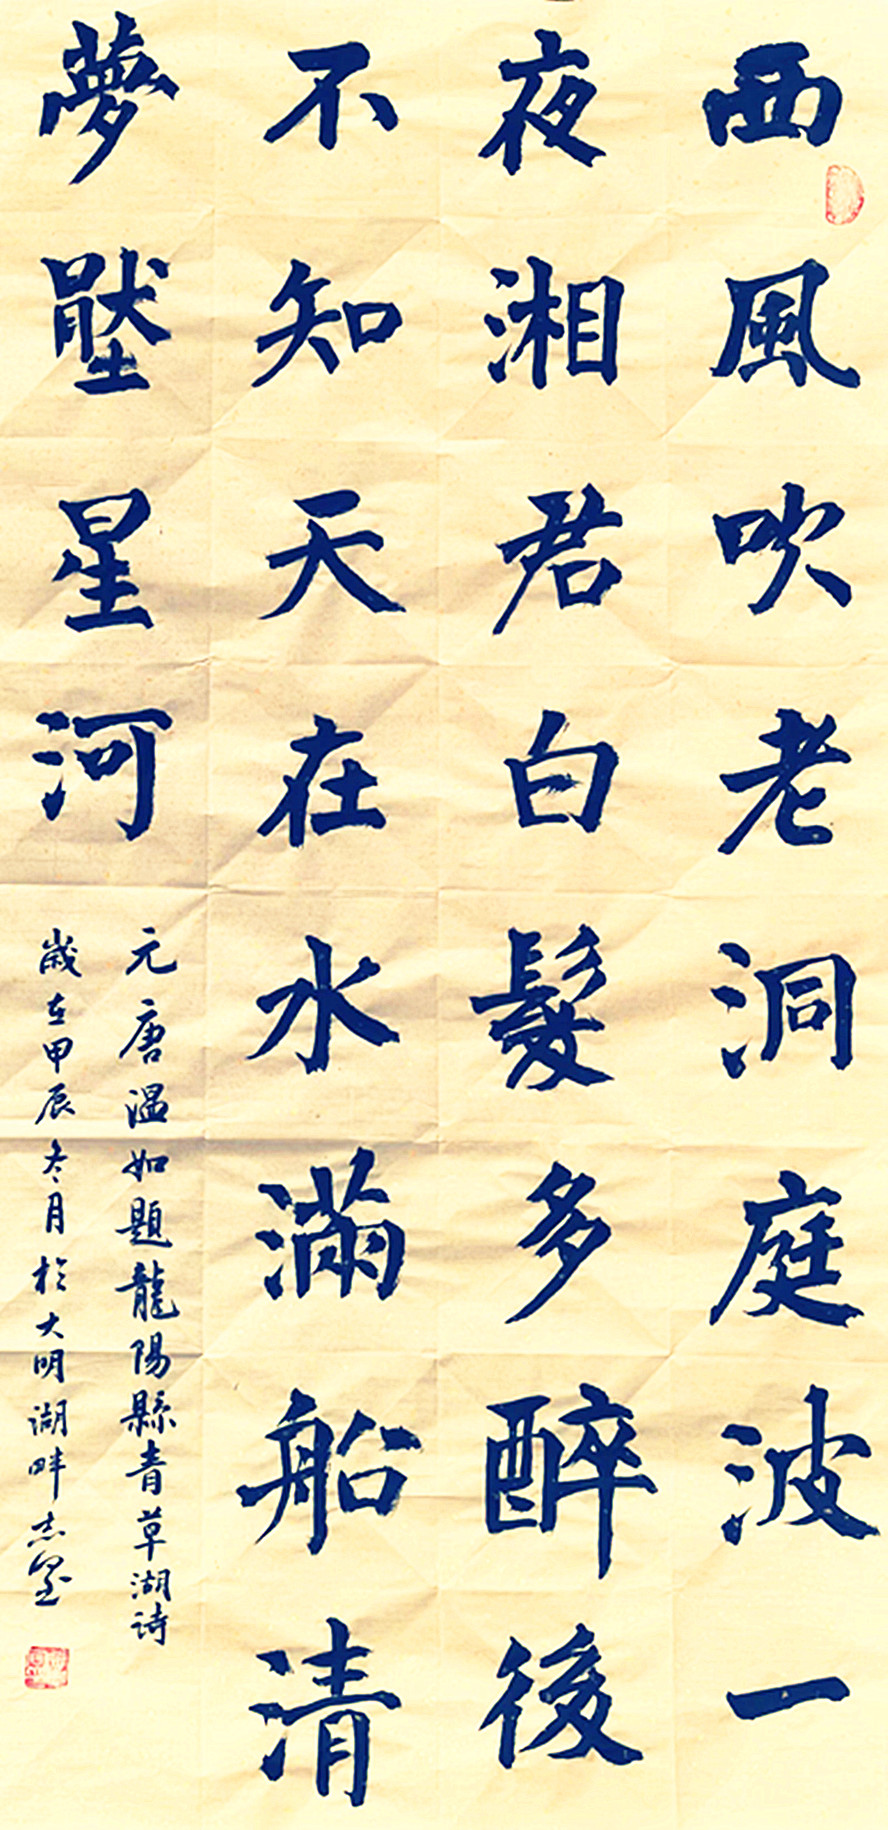 西風吹老洞庭波一
夜湘君白髮多醉後
不知天在水滿船清
夢壓星河
元唐温如題龍陽縣青草湖诗
歲在甲辰冬月於大明湖畔志